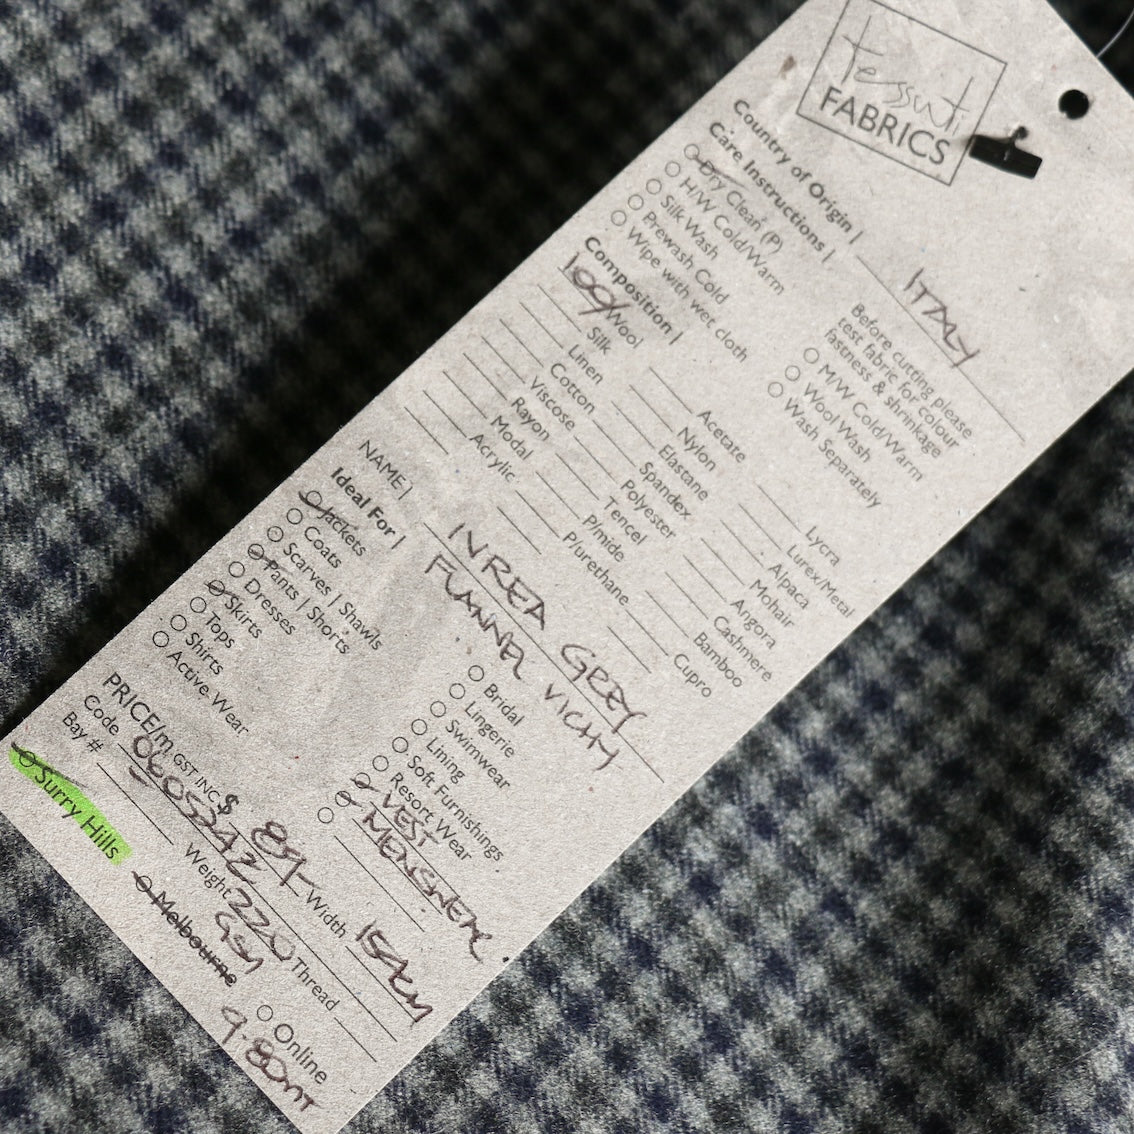 tessuti
FABRICS
Country of Origin | ITALY
Care Instructions |
Dry Clean (P)
H/W Cold/Warm
Silk Wash
Prewash Cold
Wipe with wet cloth
Before cutting please
test fabric for colour
fastness & shrinkage
M/W Cold/Warm
Wool Wash
Wash Separately
Composition |
100% Wool
Silk
Linen
Cotton
Viscose
Rayon
Modal
Acrylic
Acetate
Nylon
Elastane
Spandex
Polyester
Tencel
P/mide
P/urethane
Lycra
Lurex/Metal
Alpaca
Mohair
Angora
Cashmere
Bamboo
Cupro
NAME | IVREA GREY
FLANNEL VICHY
Ideal For |
Jackets
Coats
Scarves | Shawls
Pants | Shorts
Dresses
Skirts
Tops
Shirts
Active Wear
Bridal
Lingerie
Swimwear
Lining
Soft Furnishings
Resort Wear
VEST
MENSWEAR
PRICE/m GST INC $ 89- Width
Code
Bay # Weight 220 GSM Thread
Surry Hills Melbourne Online
9.80MT